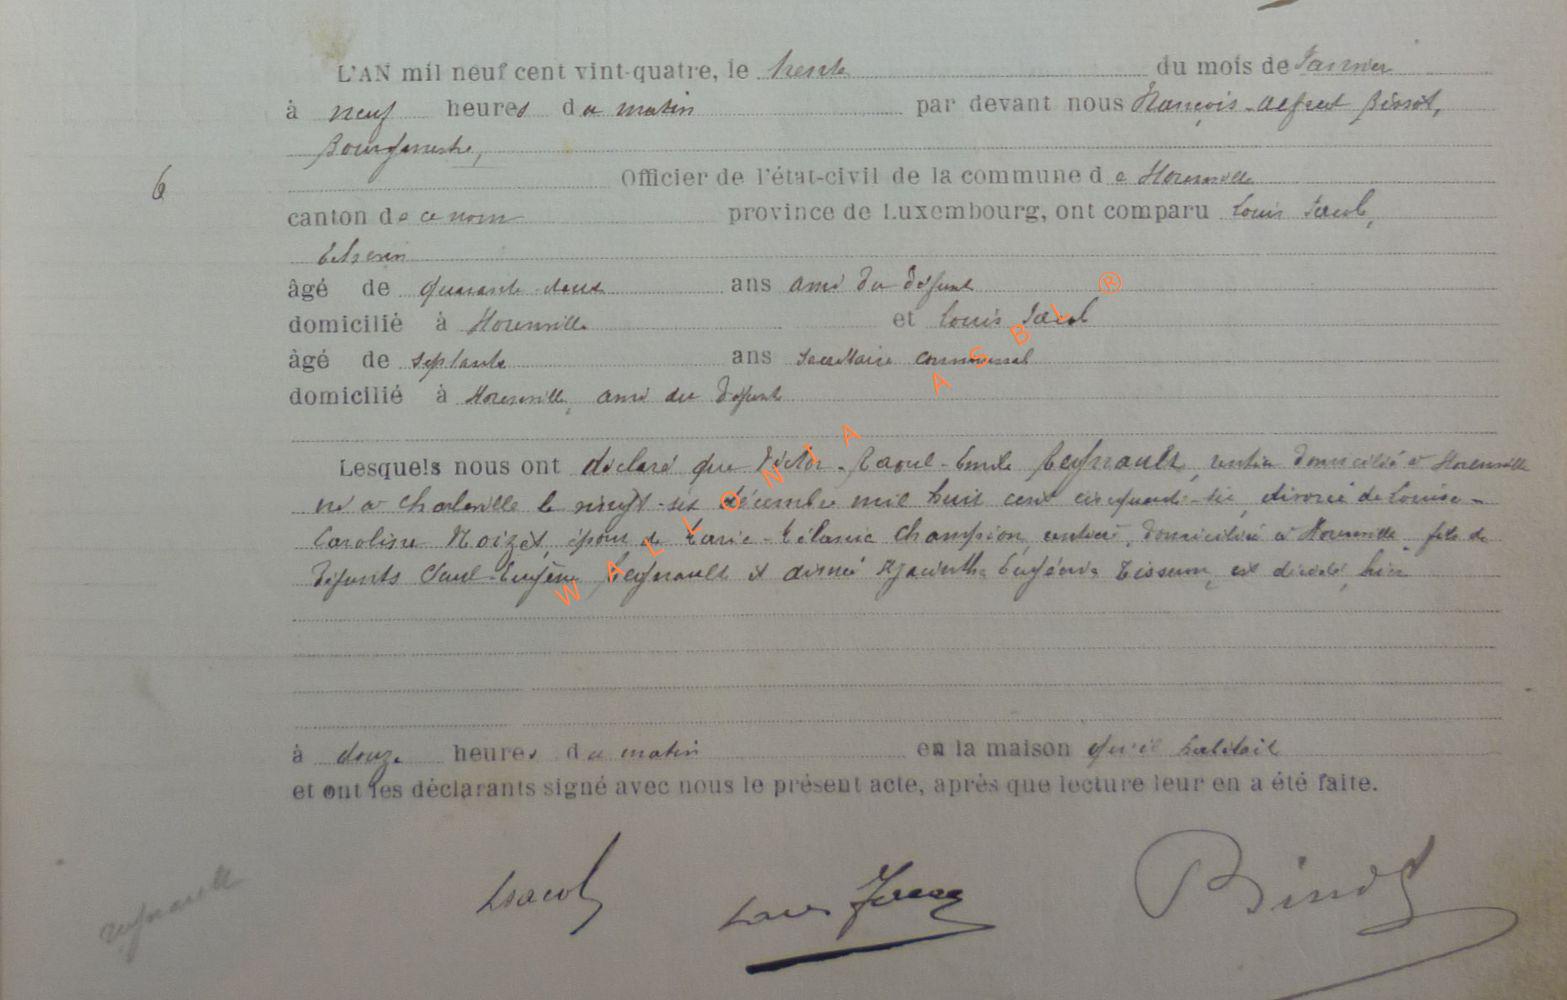 L'AN mil neuf cent vint-quatre, le trente du mois de Janvier
à neuf heures du matin par devant nous François-Alfred Binot,
Bourgmestre,
6
Officier de l'état-civil de la commune de Houmville
canton de ce nom province de Luxembourg, ont comparu Louis Jacob,
âgé de quarante-deux ans ami du défunt
domicilié à et Louis Jacob
âgé de septante ans secrétaire communal
domicilié à ami du défunt
Lesquels nous ont déclaré que Victor-Raoul-Emile Regnault, rentier domicilié à
né à Charleville le vingt-six décembre mil huit cent cinquante-six, divorcé de Louise-
Caroline Noizet, époux de Marie-Mélanie Champion, rentière, domiciliée à fils de
défunts Paul-Eugène Regnault et Hyacinthe Eugénie est décédé hier
à douze heures du matin en la maison qu'il habitait
et ont les déclarants signé avec nous le présent acte, après que lecture leur en a été faite.
LJacob Louis Binot
Regnault
WALLONIA ASBL ®